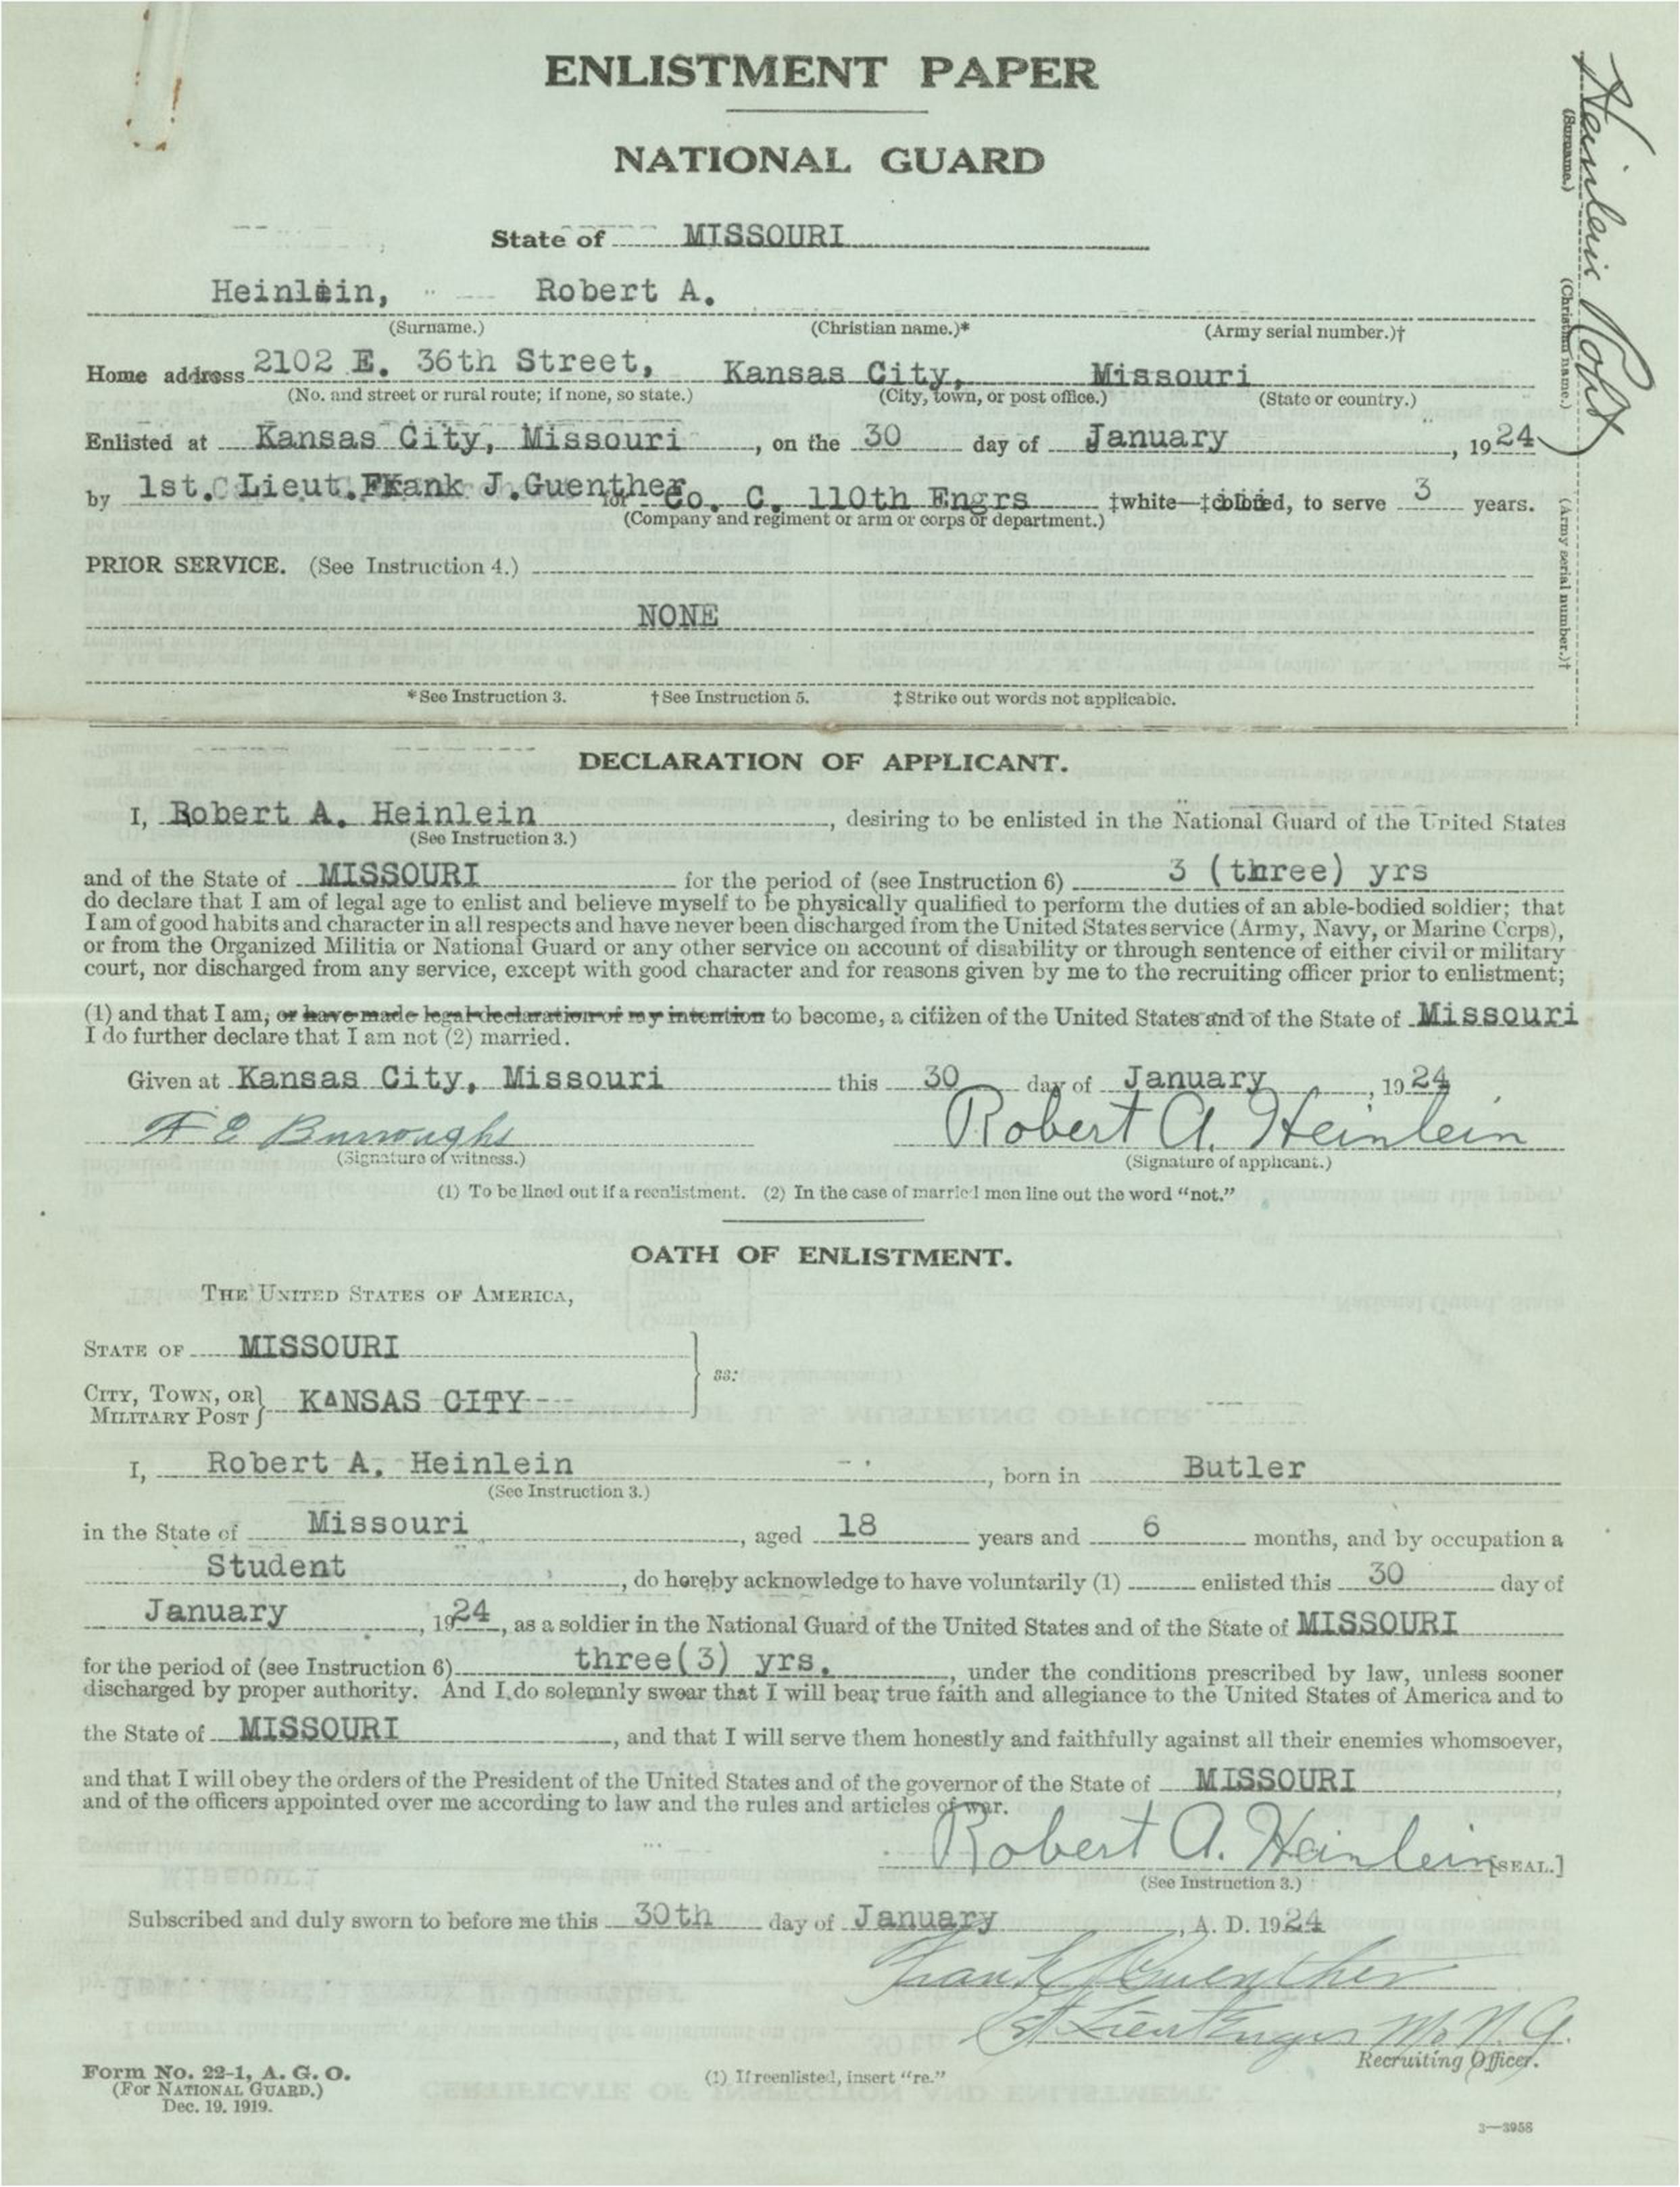 ENLISTMENT PAPER
NATIONAL GUARD
State of MISSOURI
Heinlein, Robert A.
(Surname.) (Christian name.)* (Army serial number.)†
Home address 2102 E. 36th Street, Kansas City, Missouri
(No. and street or rural route; if none, so state.) (City, town, or post office.) (State or country.)
Enlisted at Kansas City, Missouri, on the 30 day of January, 1924
by 1st. Lieut. Frank J. Guenther for Co. C. 110th Engrs ‡white—‡colored, to serve 3 years.
(Company and regiment or arm or corps or department.)
PRIOR SERVICE. (See Instruction 4.)
NONE
*See Instruction 3. †See Instruction 5. ‡Strike out words not applicable.
Heinlein Robt
(Surname.) (Christian name.) (Army serial number.)†
DECLARATION OF APPLICANT.
I, Robert A. Heinlein, desiring to be enlisted in the National Guard of the United States
(See Instruction 3.)
and of the State of MISSOURI for the period of (see Instruction 6) 3 (three) yrs
do declare that I am of legal age to enlist and believe myself to be physically qualified to perform the duties of an able-bodied soldier; that
I am of good habits and character in all respects and have never been discharged from the United States service (Army, Navy, or Marine Corps),
or from the Organized Militia or National Guard or any other service on account of disability or through sentence of either civil or military
court, nor discharged from any service, except with good character and for reasons given by me to the recruiting officer prior to enlistment;
(1) and that I am, or have made legal declaration of my intention to become, a citizen of the United States and of the State of Missouri
I do further declare that I am not (2) married.
Given at Kansas City, Missouri this 30 day of January, 1924
F E Burroughs Robert A. Heinlein
(Signature of witness.) (Signature of applicant.)
(1) To be lined out if a reenlistment. (2) In the case of married men line out the word "not."
OATH OF ENLISTMENT.
THE UNITED STATES OF AMERICA,
STATE OF MISSOURI
ss:
CITY, TOWN, OR
MILITARY POST KANSAS CITY
I, Robert A. Heinlein, born in Butler
(See Instruction 3.)
in the State of Missouri, aged 18 years and 6 months, and by occupation a
Student, do hereby acknowledge to have voluntarily (1) enlisted this 30 day of
January, 1924, as a soldier in the National Guard of the United States and of the State of MISSOURI
for the period of (see Instruction 6) three(3) yrs., under the conditions prescribed by law, unless sooner
discharged by proper authority. And I do solemnly swear that I will bear true faith and allegiance to the United States of America and to
the State of MISSOURI, and that I will serve them honestly and faithfully against all their enemies whomsoever,
and that I will obey the orders of the President of the United States and of the governor of the State of MISSOURI,
and of the officers appointed over me according to law and the rules and articles of war.
Robert A. Heinlein [SEAL.]
(See Instruction 3.)
Subscribed and duly sworn to before me this 30th day of January, A. D. 1924
Frank J Guenther
1st Lieut Engrs Mo N. G.
Recruiting Officer.
Form No. 22-1, A. G. O.
(For NATIONAL GUARD.)
Dec. 19, 1919.
(1) If reenlisted, insert "re."
3—3956